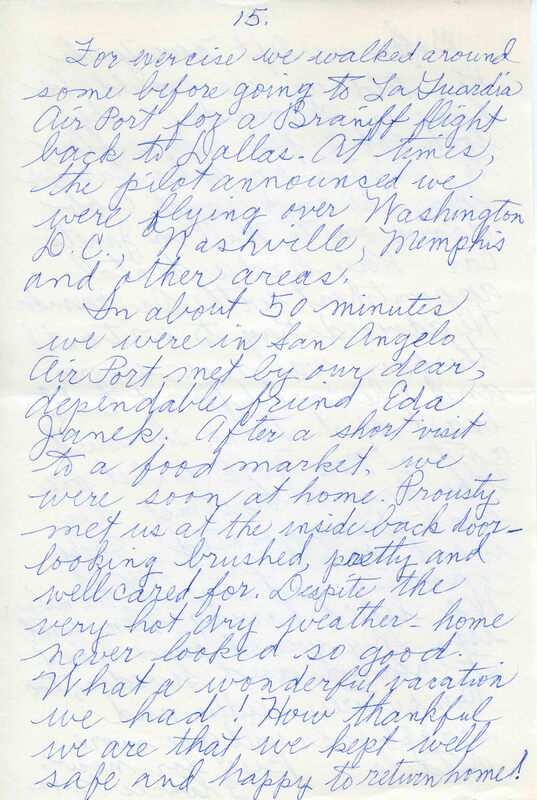 15.
For exercise we walked around
some before going to LaGuardia
Air Port for a Braniff flight
back to Dallas - At times,
the pilot announced we
were flying over Washington
D.C., Nashville, Memphis
and other areas.
In about 50 minutes
we were in San Angelo
Air Port met by our dear,
dependable friend Eda
Janek. After a short visit
to a food market, we
were soon at home. Prousty
met us at the inside back door -
looking brushed, pretty and
well cared for. Despite the
very hot dry weather - home
never looked so good.
What a wonderful vacation
we had! How thankful
we are that we kept well
safe and happy to return home!